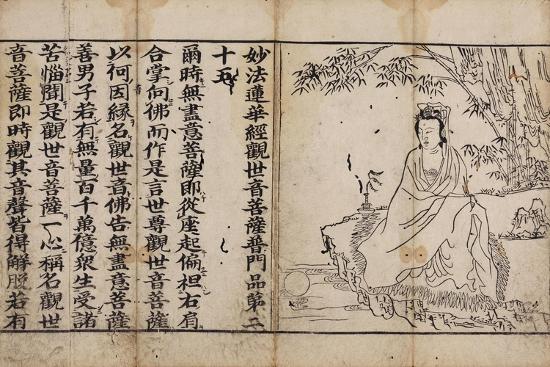 妙法蓮華經觀世音菩薩普門品第二
十五
爾時無盡意菩薩即從座起偏袒右肩
合掌向佛而作是言世尊觀世音菩薩
以何因緣名觀世音佛告無盡意菩薩
善男子若有無量百千萬億衆生受諸
苦惱聞是觀世音菩薩一心稱名觀世
音菩薩即時觀其音聲皆得解脫若有